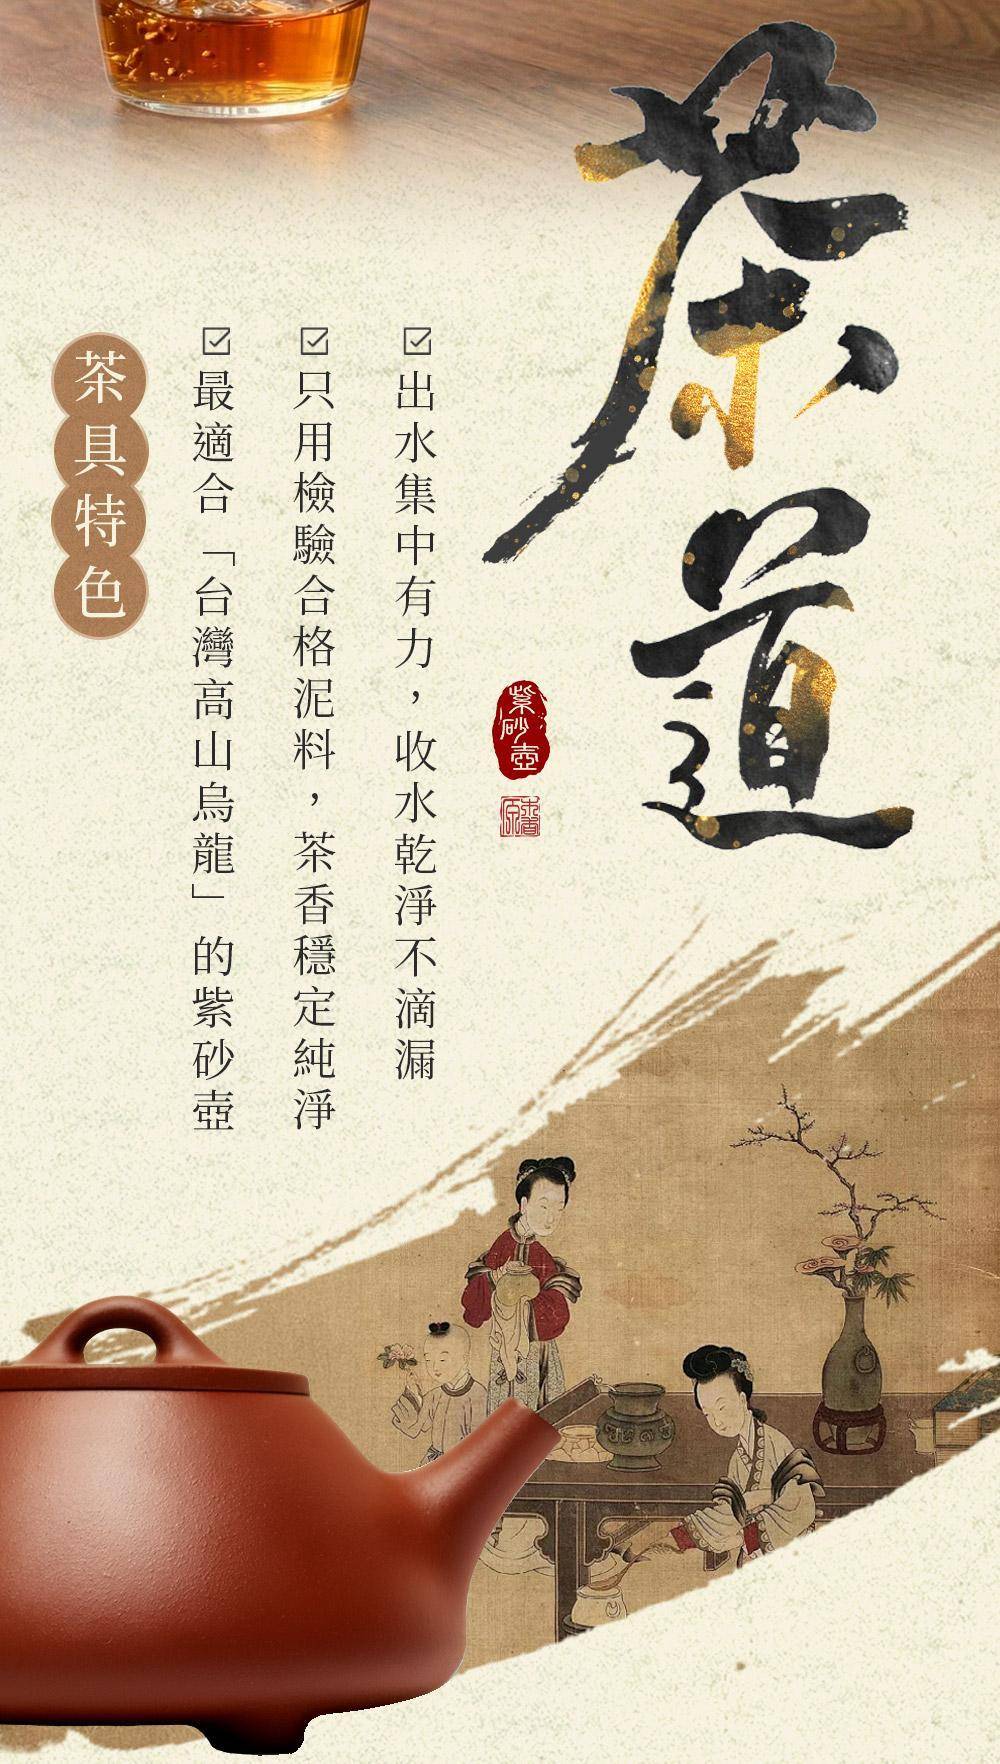 茶道
紫砂壺
出水集中有力，收水乾淨不滴漏
只用檢驗合格泥料，茶香穩定純淨
最適合「台灣高山烏龍」的紫砂壺
茶具特色